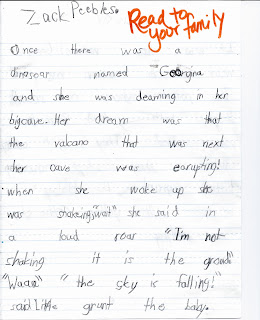 Zack Peebles.
Read to
your family
Once there was a
dinasoar named Georgina
and she was dearning in her
bigcave. Her dream was that
the valcano that was next
her cave was earupting!
when she woke up she
was shakeing "wait" she said in
a loud roar "I'm not
shaking it is the ground"
"Waaa" "the sky is falling!"
said Little grunt the baby.